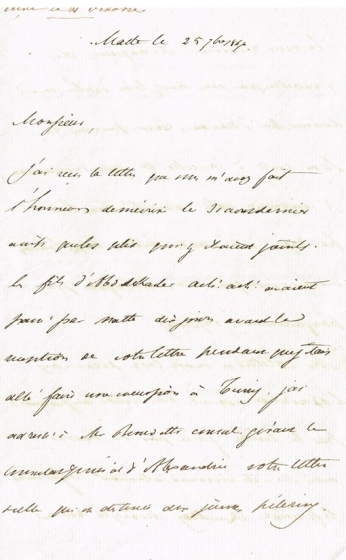 Malte le 25 7bre 184
Monsieur,
j'ai reçu la lettre que vous m'avez fait
l'honneur de m'écrire le 31 août dernier
ainsi que les plis qui y étaient joints.
les fils d'Abd el Kader avaient
passé par Malte dix jours avant la
réception de votre lettre pendant que j'étais
allé faire une excursion à Tunis. j'ai
adressé à Mr Benedetti consul gérant le
consulat général d'Alexandrie votre lettre
celle qui est destinée aux jeunes pèlerins.